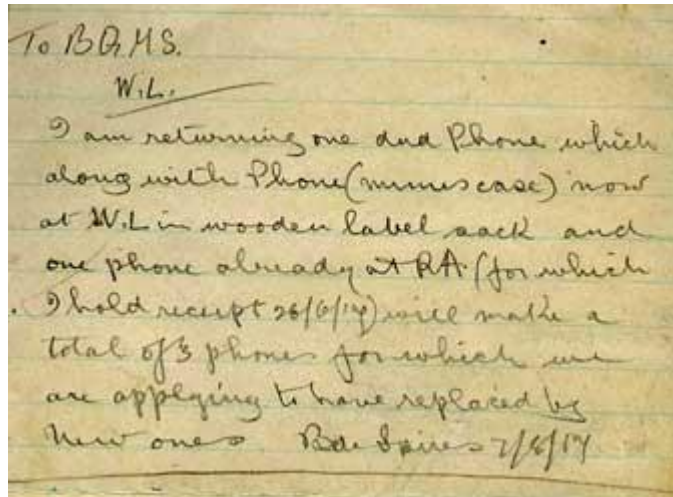 To B.Q.M.S.
W.L.
I am returning one dud Phone which
along with Phone (minus case) now
at W.L in wooden label sack and
one phone already at RA. (for which
I hold receipt 26/6/17) will make a
total of 3 phones for which we
are applying to have replaced by
new ones. Bdr Spires 7/8/17